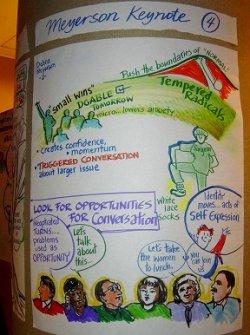 Meyerson Keynote
4
Debra
Meyerson
Push the boundaries of "NORMAL"
Tempered
Radicals
"Small Wins"
DOABLE
TOMORROW
micro... lowers anxiety
• creates confidence,
momentum
• TRIGGERED CONVERSATION
about larger issue
White lace
Socks
LOOK FOR OPPORTUNITIES
FOR Conversation
Negotiated
Turns...
problems
used as
OPPORTUNITY
Let's
talk
about
this...
Identity
moves... acts of
Self Expression
Me
Let's take
the women
to lunch.
You can
join us